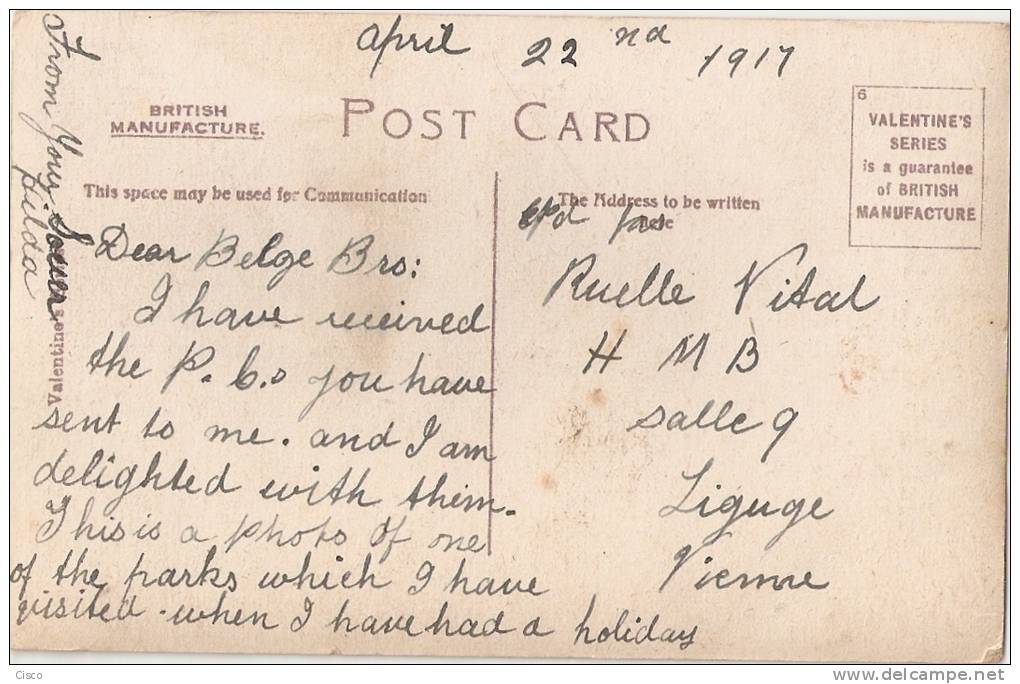 april 22 nd 1917
BRITISH
MANUFACTURE.
POST CARD
6
VALENTINE'S
SERIES
is a guarantee
of BRITISH
MANUFACTURE
This space may be used for Communication
The Address to be written
Dear Belge Bro:
I have received
the P. C.s you have
sent to me. and I am
delighted with them.
This is a photo of one
of the parks which I have
visited. when I have had a holiday
From Your
Hilda
Valentine's
Ruelle Vital
H M B
salle 9
Liguge
Vienne
Cisco
www.delcampe.net